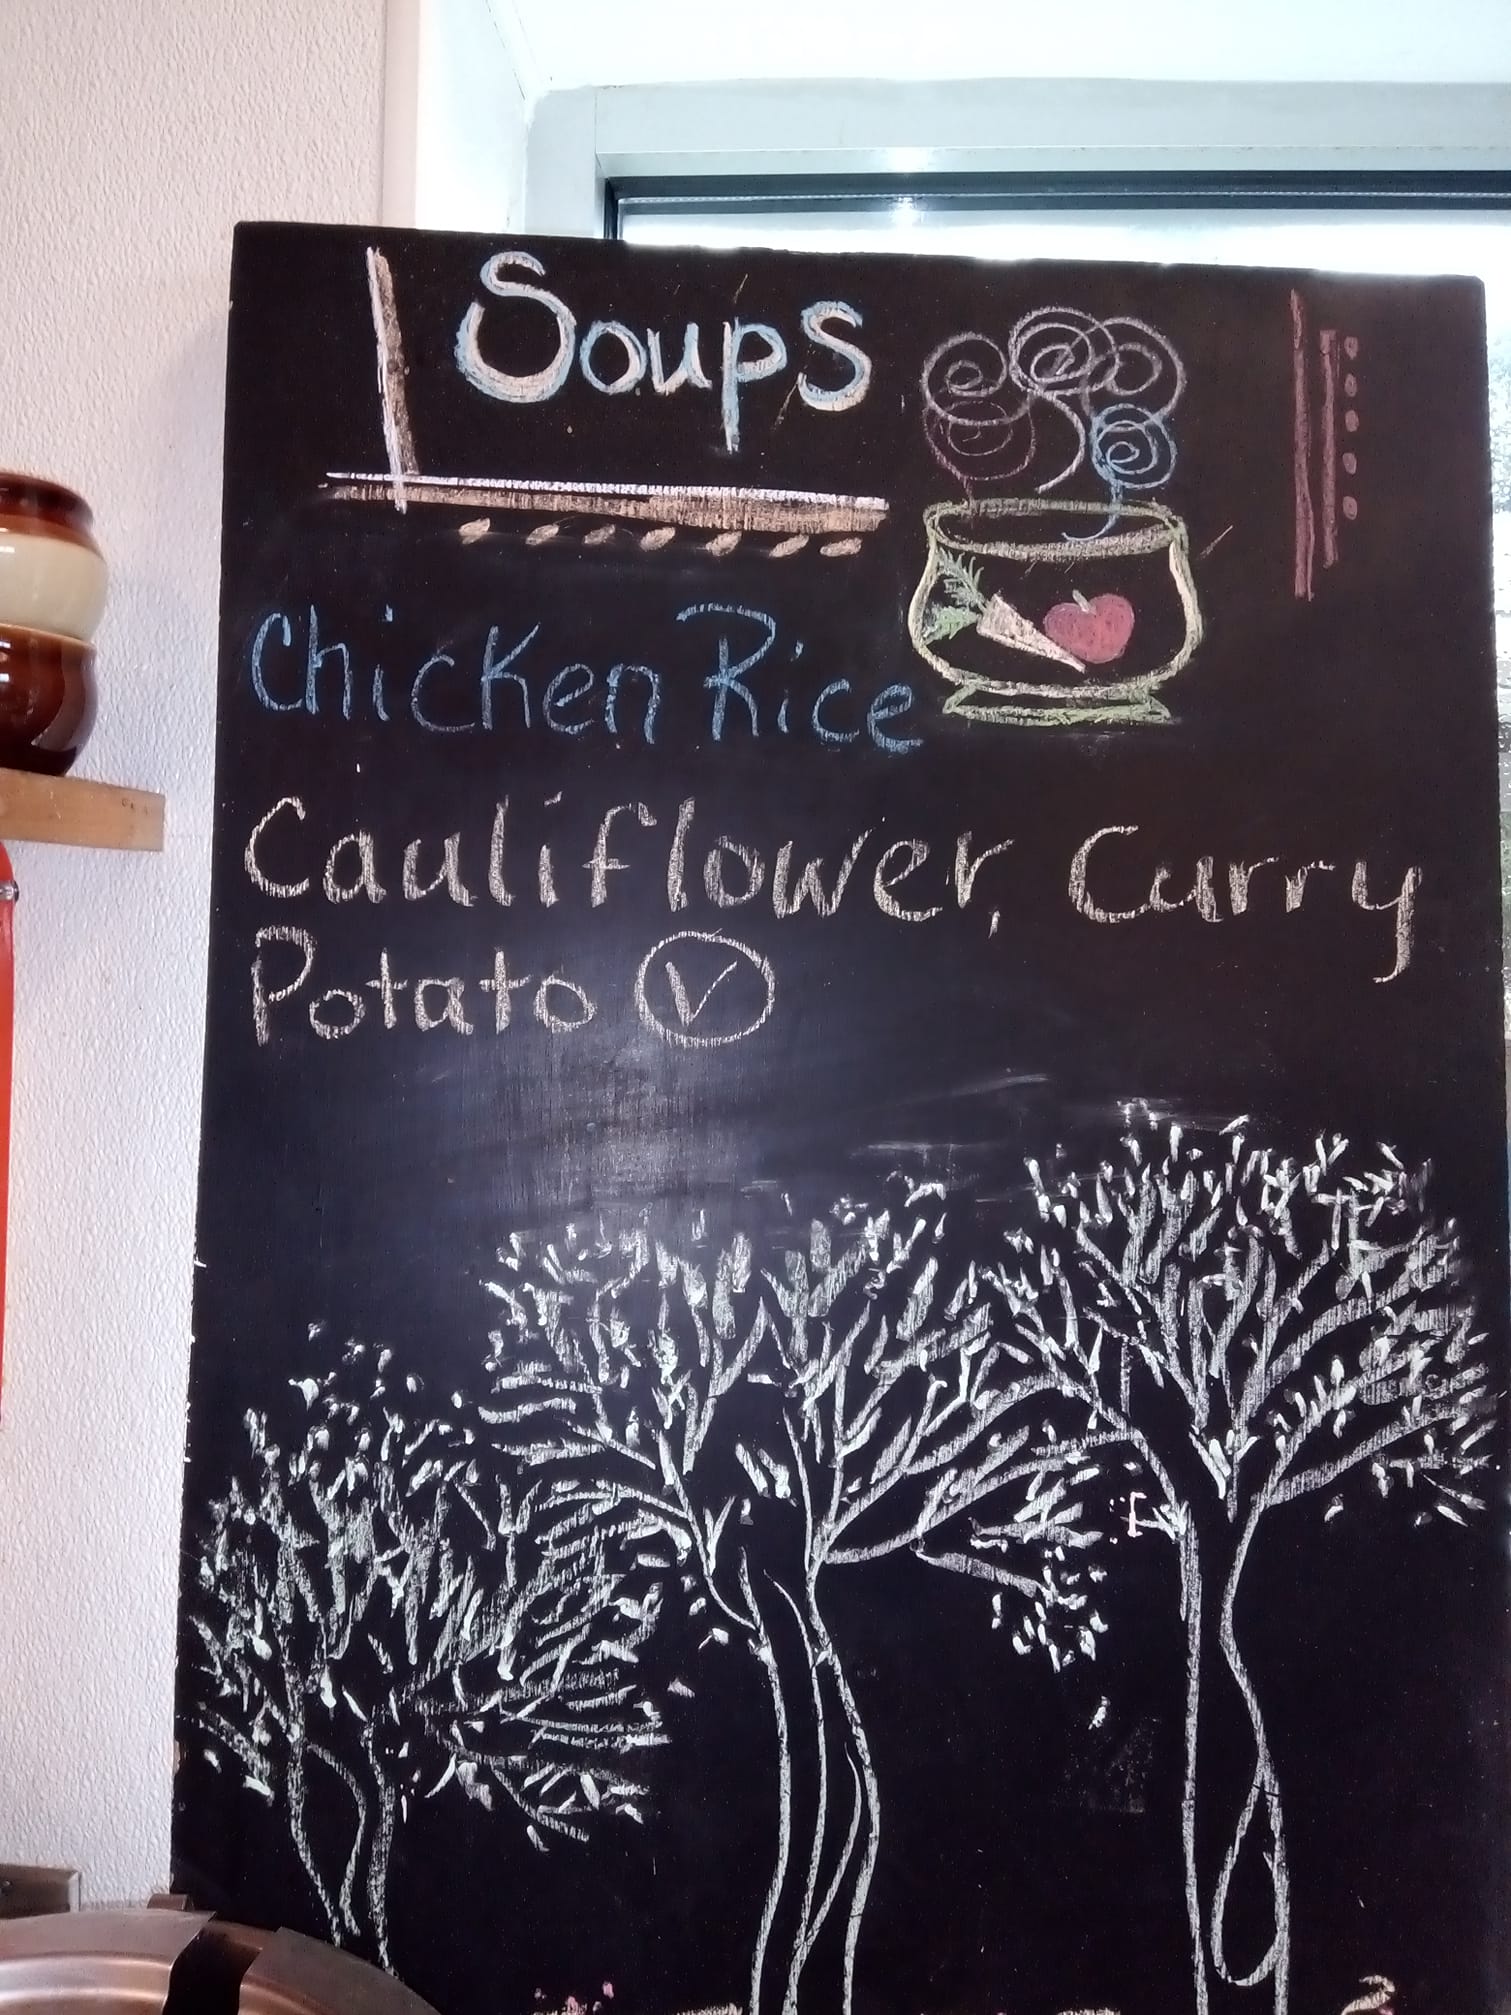 Soups
Chicken Rice
Cauliflower, Curry
Potato Ⓥ